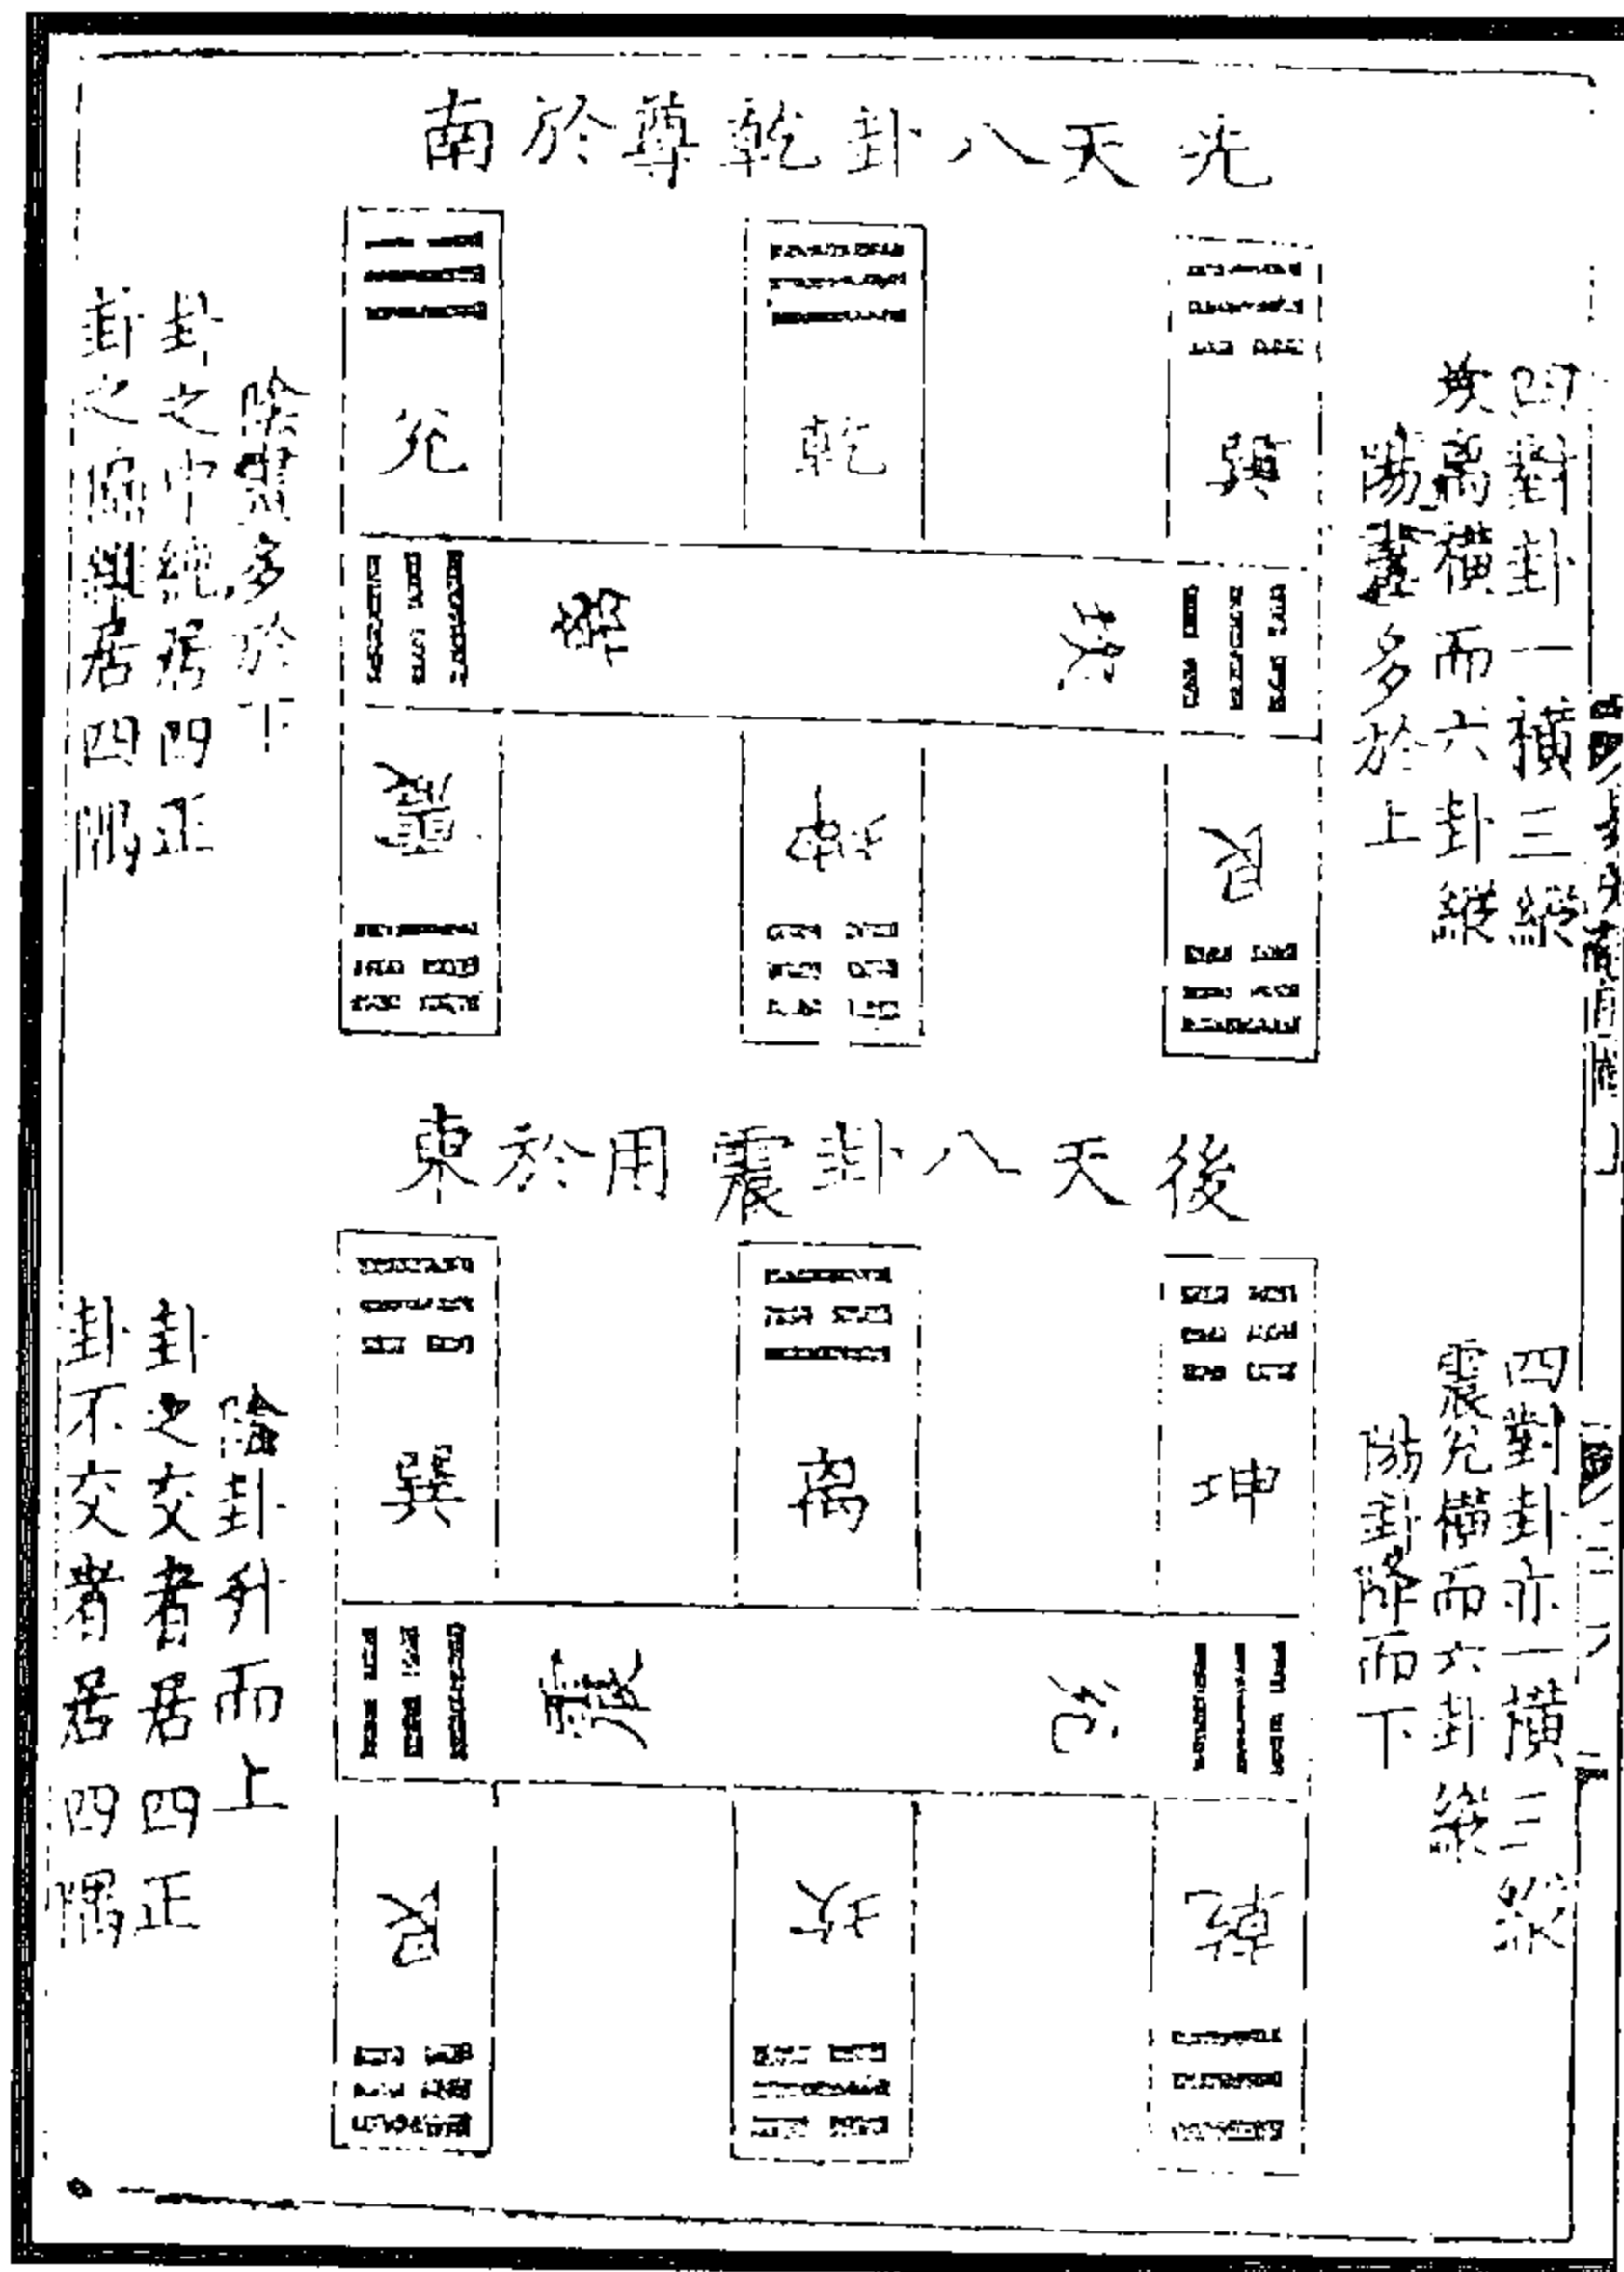 先天八卦乾尊於南
四對卦一橫三縱
坎离橫而六卦縱
陽畫多於上
巽
乾
兌
坎
离
艮
坤
震
陰畫多於下
卦之中純居四正
卦之偏雜居四隅
後天八卦震用於東
四對卦亦一橫三縱
震兌橫而六卦縱
陽卦降而下
坤
离
巽
兌
震
乾
坎
艮
陰卦升而上
卦之交者居四正
卦不交者居四隅